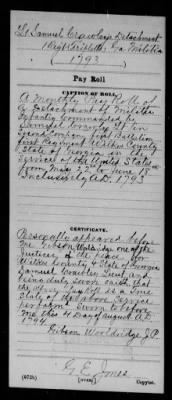 Lt Samuel Crawley's Detachment
1 Regt Griffith's Ga. Militia
(1793)
Pay Roll
CAPTION OF ROLL
A Monthly Pay Roll of
A Detachment of Militia
Infantry Commanded by
Samuel Crawley Lt in
Second Company Third Battalion
first Regiment Wilkes County
State of Georgia in the
Service of the United States
from May 22d to June 18th
Inclusively A.D. 1793
CERTIFICATE.
Personally appeared before
me Gibson Wooldridge one of the
Justices of the peace for
Wilkes County & State of Georgia
Samuel Crawley Lieut and
being duly sworn saith that
the above Pay Roll is a True
State of the above Service
performed Sworn to before
me this 4 Day of August A.D.
1794
Gibson Wooldridge J.P.
G E Jones
(572b) Copyist.